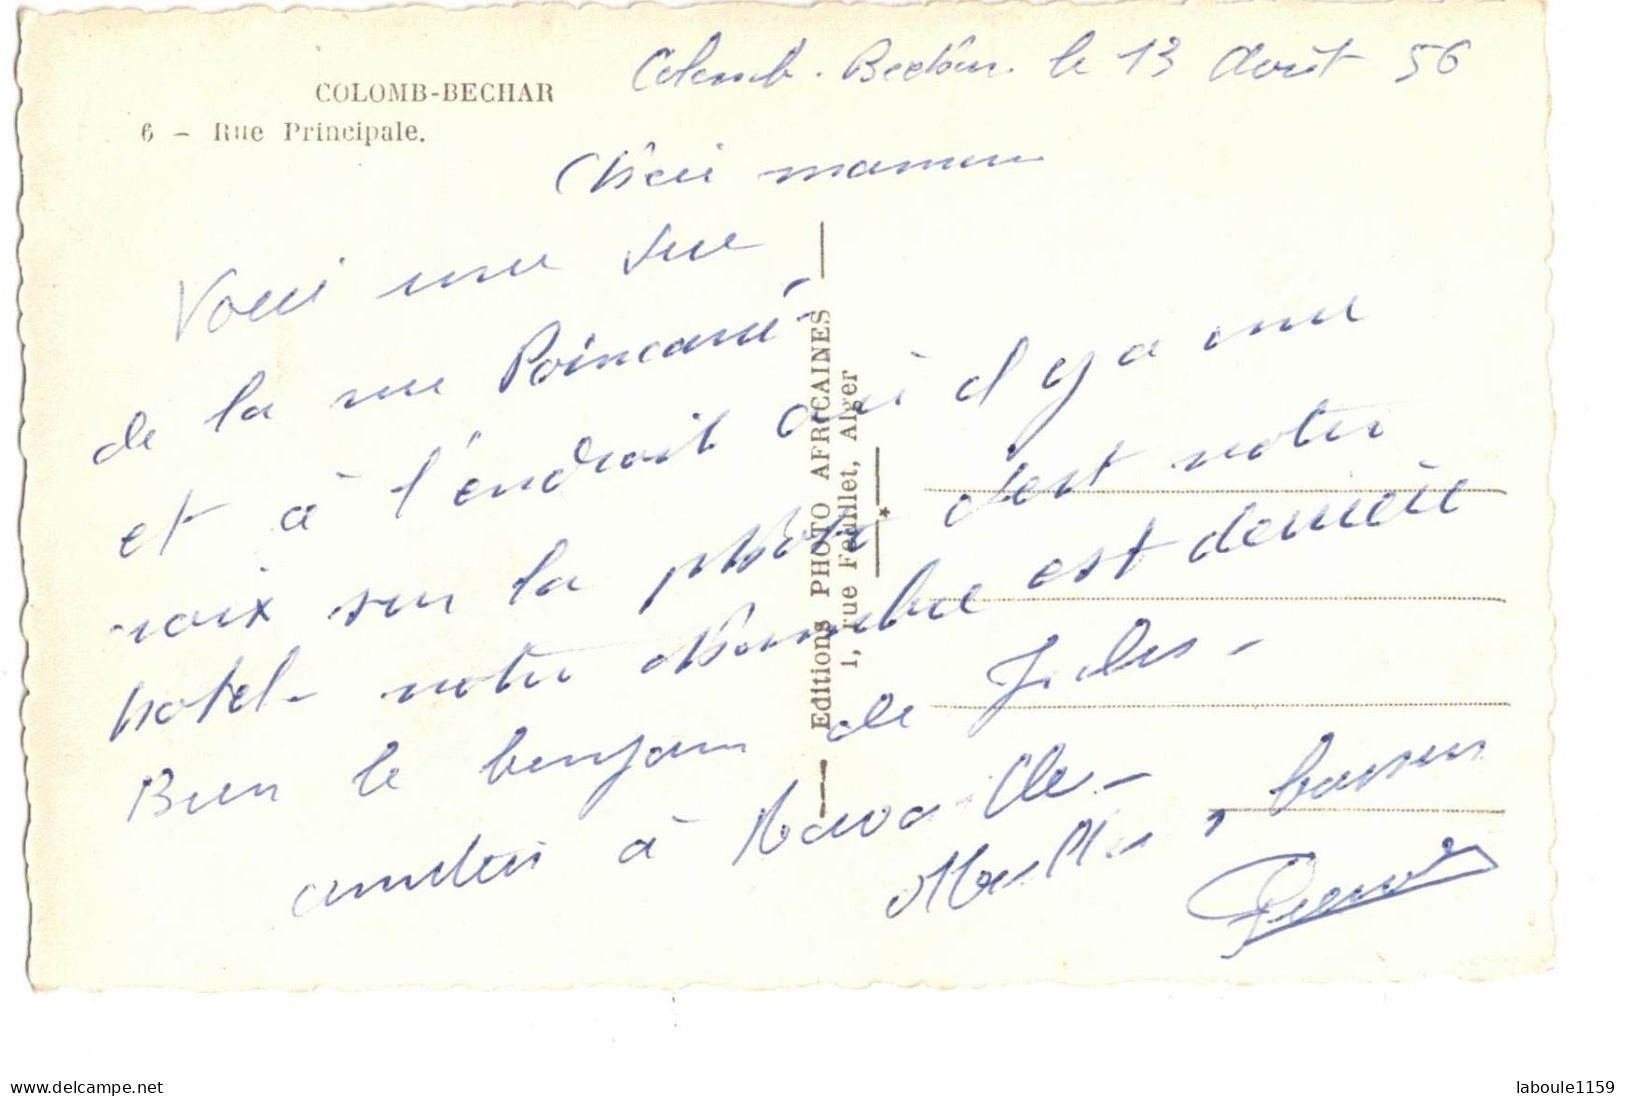 COLOMB-BECHAR
6 – Rue Principale.
Colomb-Bechar le 13 Août 56
Chère maman
Voici une vue
de la rue Poincaré
et à l'endroit où il y a une
croix sur la photo c'est notre
hotel - notre chambre est derrière
Bien le bonjour de Jules -
à
baisers
Editions PHOTO AFRICAINES
1, rue Feuillet, Alger
www.delcampe.net
laboule1159